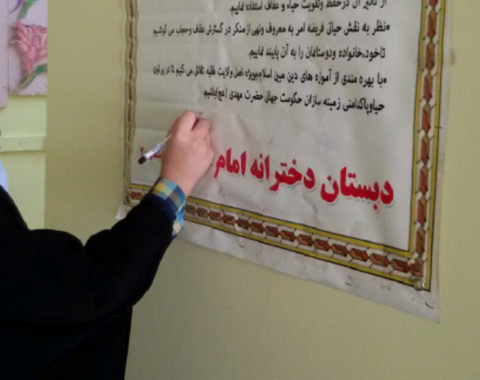 از تاثیر آن درحفظ وتقویت حیاء و عفاف استفاده نماییم.
•نظر به نقش حیاتی فریضه امر به معروف ونهی از منکر در گسترش عفاف وحجاب می کوشیم
تاخود،خانواده ودوستانمان را به آن پایبند نماییم.
•با بهره مندی از آموزه های دین مبین اسلام،بویژه اصل ولایت فقیه تلاش می کنیم تا در پرتوی
حیاوپاکدامنی زمینه سازان حکومت جهانی حضرت مهدی (عج)باشیم.
دبستان دخترانه امام